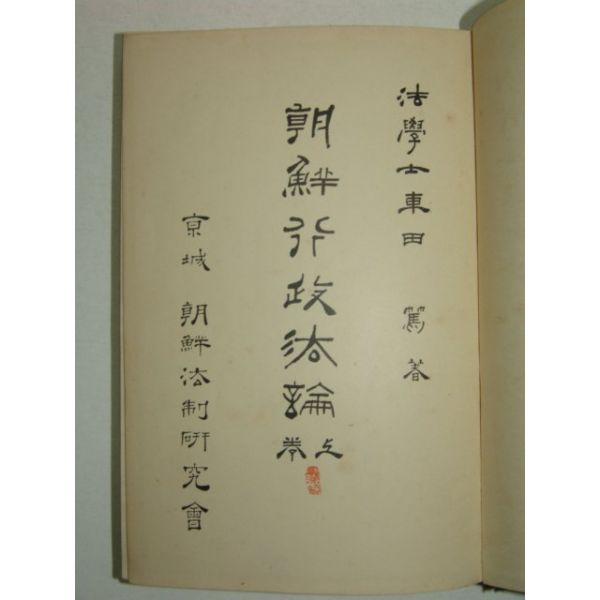 法學士車田 篤 著
朝鮮行政法論 上卷
京城 朝鮮法制研究會